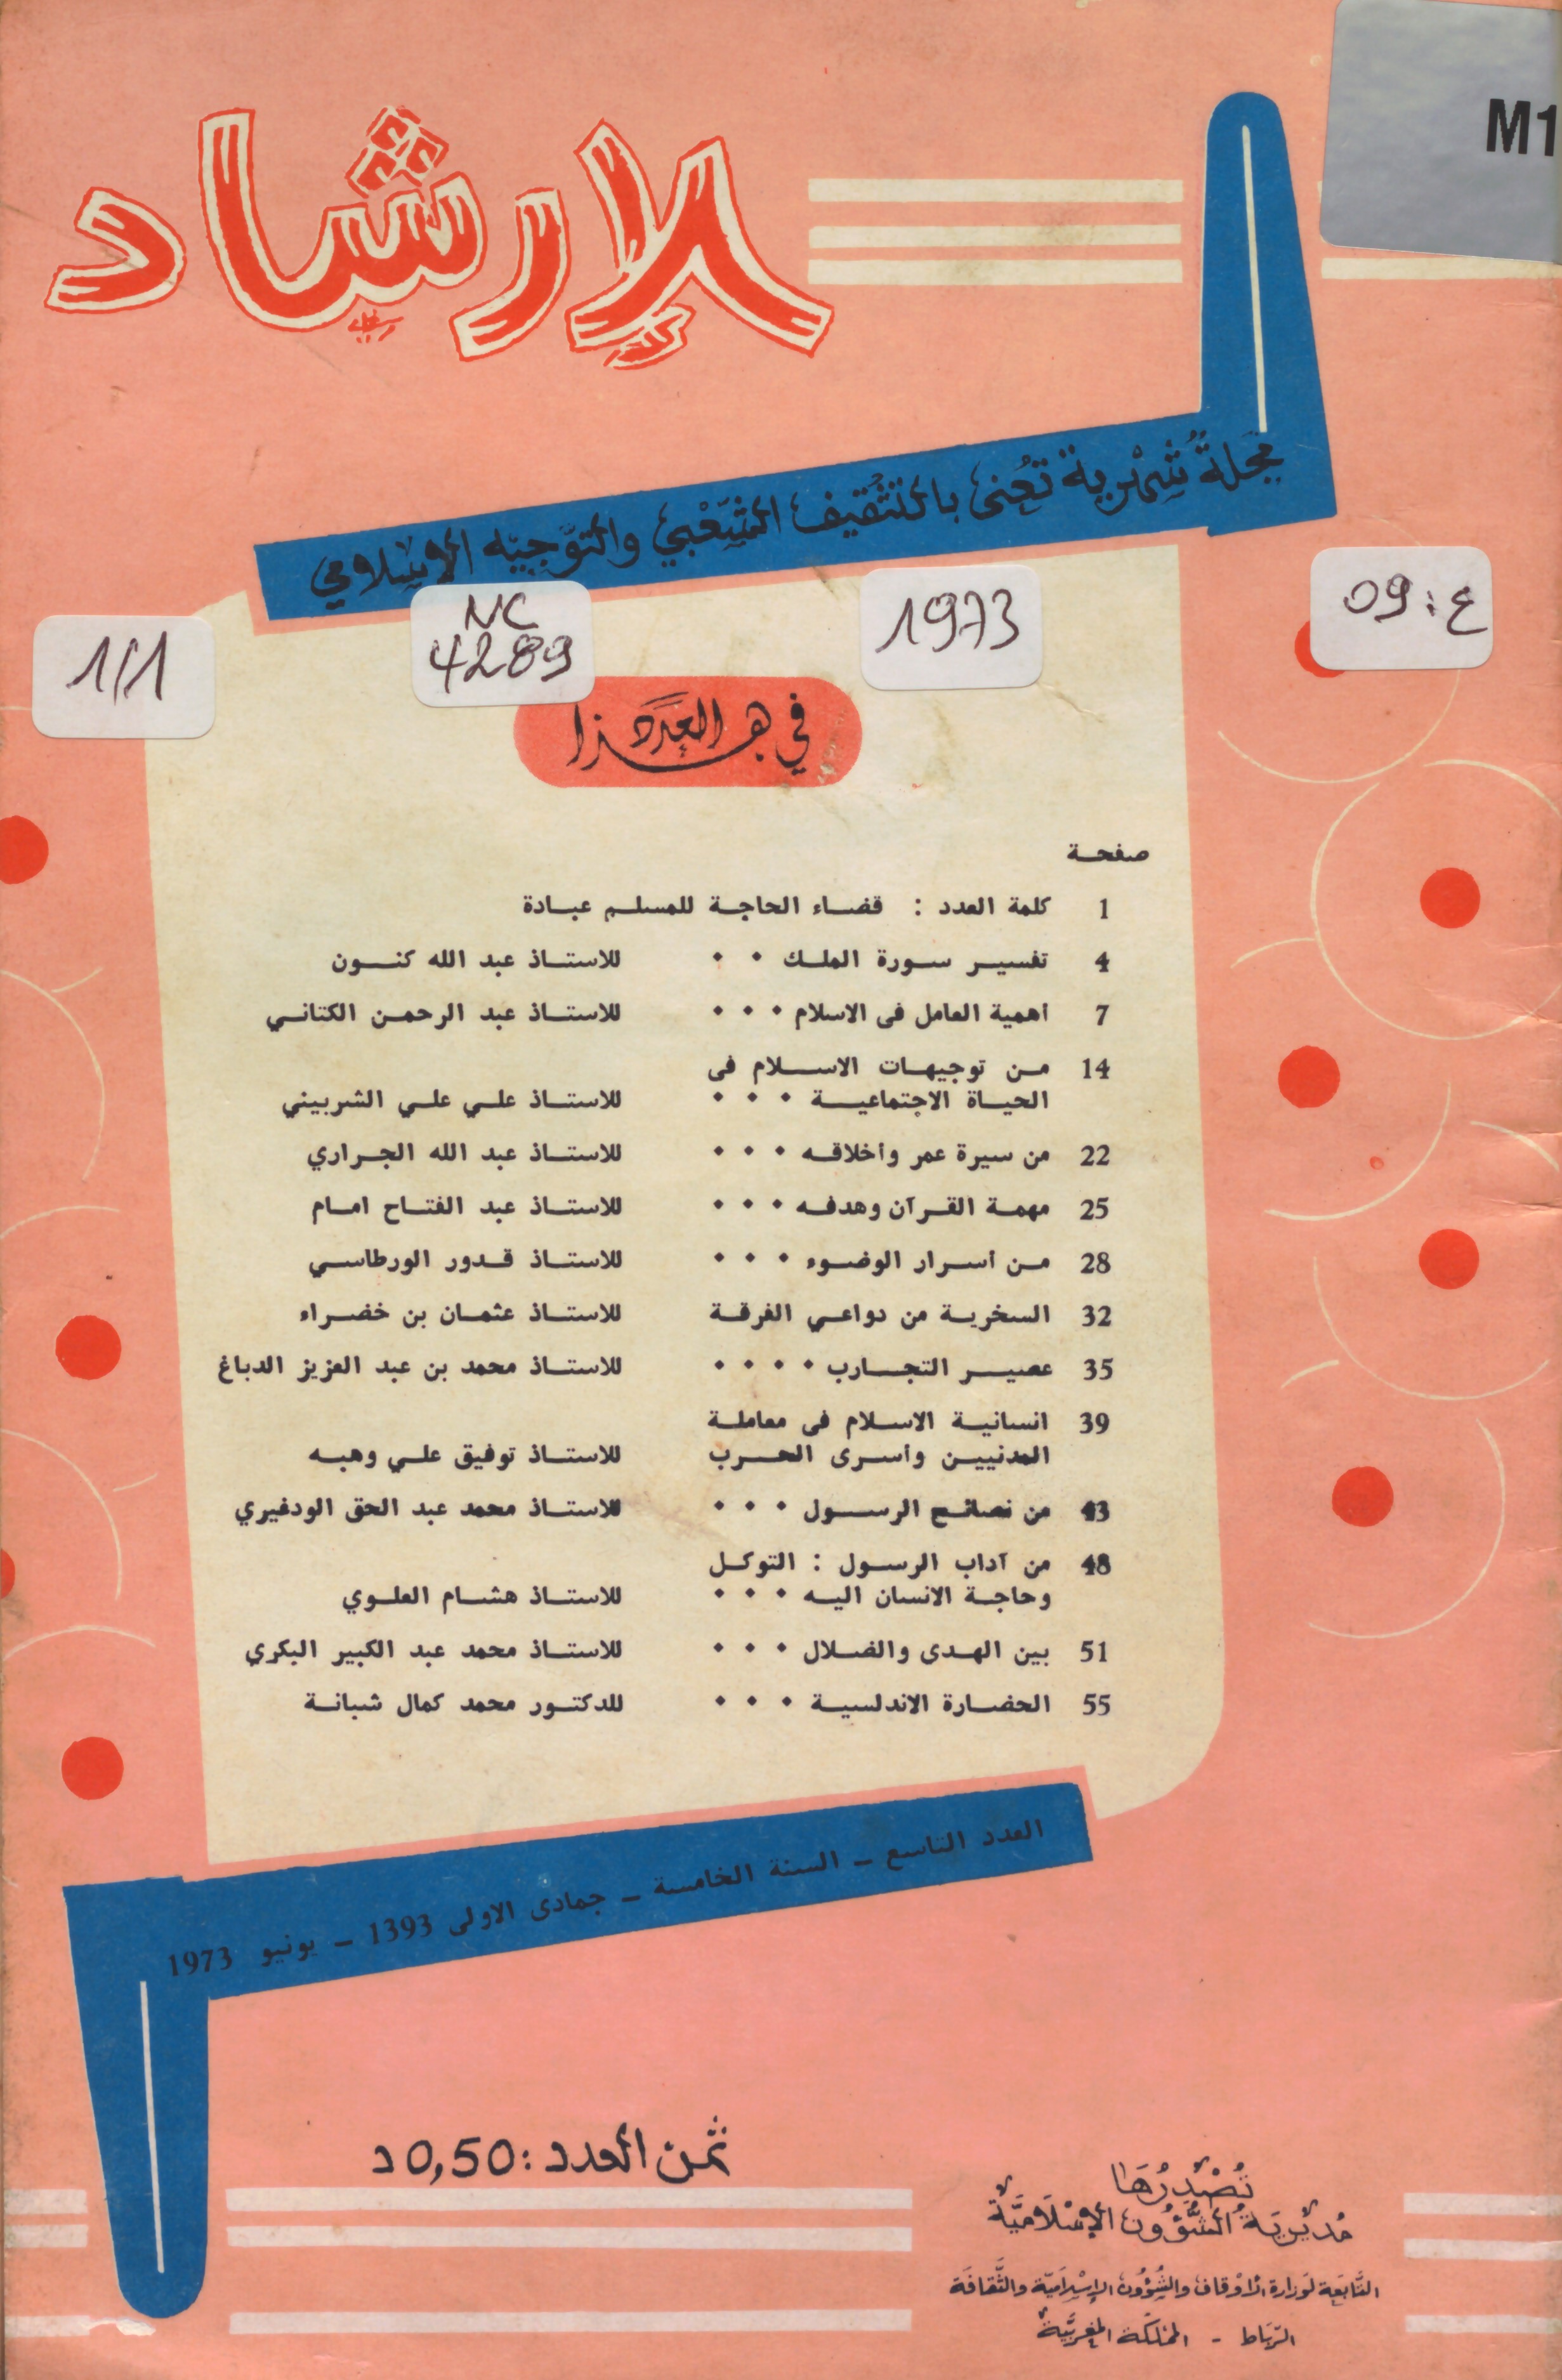 M1
الإرشاد
مجلة شهرية تعنى بالتثقيف الشعبي والتوجيه الإسلامي
ع : 09
1973
NC
4289
1/1
في هذا العدد
صفحة
1 كلمة العدد : قضاء الحاجة للمسلم عبادة
4 تفسير سورة الملك . . للاستاذ عبد الله كنون
7 أهمية العامل فى الاسلام . . . للاستاذ عبد الرحمن الكتاني
14 من توجيهات الاسلام فى
الحياة الاجتماعية . . . للاستاذ علي علي الشربيني
22 من سيرة عمر وأخلاقه . . . للاستاذ عبد الله الجراري
25 مهمة القرآن وهدفه . . . للاستاذ عبد الفتاح امام
28 من أسرار الوضوء . . . للاستاذ قدور الورطاسي
32 السخرية من دواعي الفرقة للاستاذ عثمان بن خضراء
35 عصير التجارب . . . . للاستاذ محمد بن عبد العزيز الدباغ
39 انسانية الاسلام فى معاملة
المدنيين وأسرى الحرب للاستاذ توفيق علي وهبه
43 من نصائح الرسول . . . للاستاذ محمد عبد الحق الودغيري
48 من آداب الرسول : التوكل
وحاجة الانسان اليه . . . للاستاذ هشام العلوي
51 بين الهدى والضلال . . . للاستاذ محمد عبد الكبير البكري
55 الحضارة الاندلسية . . . للدكتور محمد كمال شبانة
العدد التاسع – السنة الخامسة – جمادى الاولى 1393 – يونيو 1973
ثمن العدد : 0,50 د
تُصْدِرُهَا
مديرية الشؤون الإسلامية
التابعة لوزارة الأوقاف والشؤون الإسلامية والثقافة
الرباط - المملكة المغربية